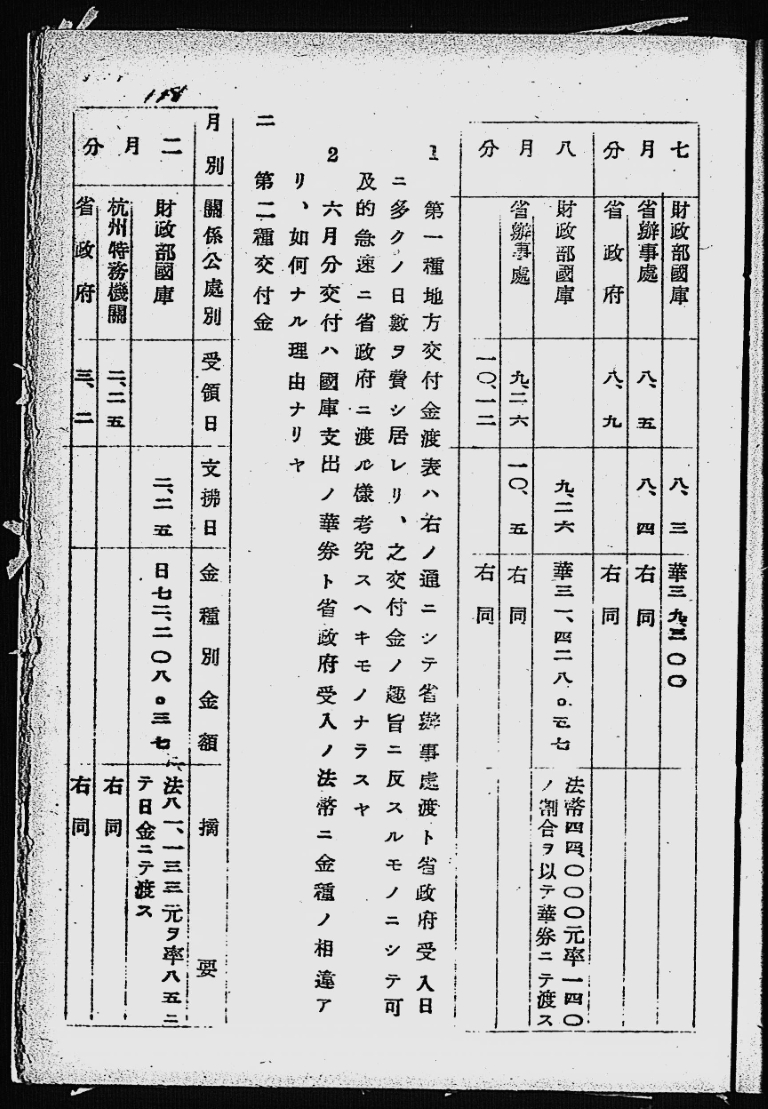 七月分
財政部國庫 八、三 華三九三〇〇
省辦事處 八、五 八、四 右同
省政府 八、九 右同
八月分
財政部國庫 九、二六 華三一、四二八。五七 法幣四四、〇〇〇元率一四〇
ノ割合ヲ以テ華券ニテ渡ス
省辦事處 九、二六 一〇、五 右同
一〇、一二 右同
1 第一種地方交付金渡表ハ右ノ通ニシテ省辦事處渡ト省政府受入日
ニ多クノ日數ヲ費シ居レリ、之交付金ノ趣旨ニ反スルモノニシテ可
及的急速ニ省政府ニ渡ル樣考究スヘキモノナラスヤ
2 六月分交付ハ國庫支出ノ華券ト省政府受入ノ法幣ニ金種ノ相違ア
リ、如何ナル理由ナリヤ
二 第二種交付金
月別 關係公處別 受領日 支拂日 金種別金額 摘要
二月分
財政部國庫 二、二五 日七二、二〇八。三七 法八一、一三三元ヲ率八五ニ
テ日金ニテ渡ス
杭州特務機關 二、二五 右同
省政府 三、二 右同
118